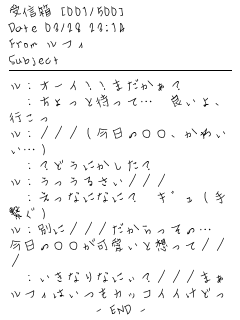 受信箱 [001/500]
Date 03/28 23:14
From ルフィ
Subject
ル：オーイ！！まだかぁ？
　：ちょっと待って… 良いよ、
行こっ
ル：///（今日の〇〇、かわい
い…）
　：？どうにかした？
ル：うっうるさい///
　：えっなになに？ ギュ（手
繋ぐ）
ル：別に///だからっその…
今日の〇〇が可愛いと想って//
/
　：いきなりなにぃ？///まぁ
ルフィはいつもカッコイイけどっ
- END -